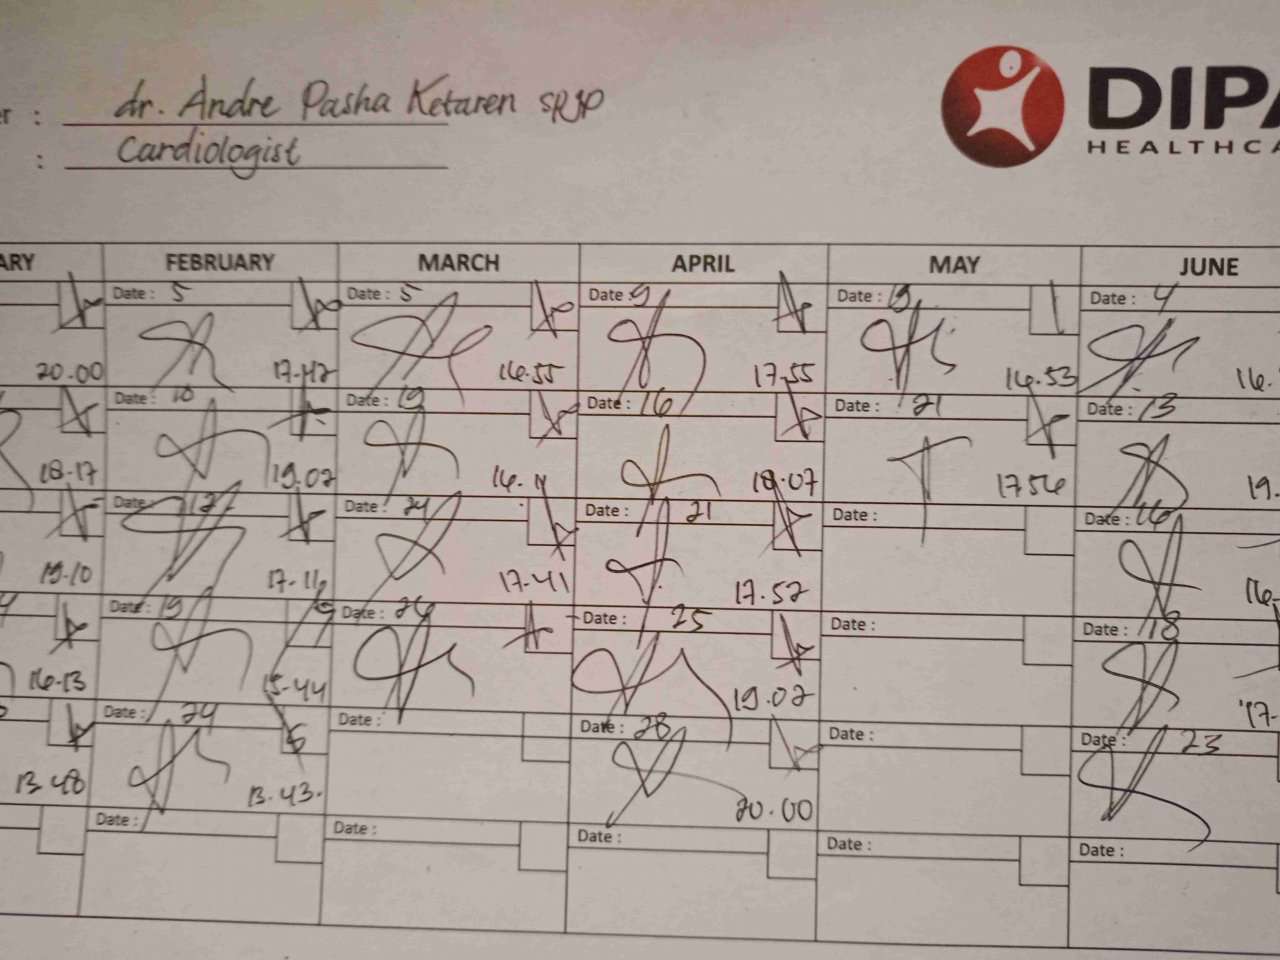 er : dr. Andre Pasha Ketaren SpJP
: Cardiologist
DIPA
HEALTHCA
ARY FEBRUARY MARCH APRIL MAY JUNE
Date : 5 Date : 5 Date : 9 Date : 19 Date : 4
20.00 17.42 16.55 17.55 16.53 16.
Date : 10 Date : 19 Date : 16 Date : 21 Date : 13
18.17 19.02 16. 18.07 17.56 19.
Date : 12 Date : 24 Date : 21 Date : Date : 16
19.10 17.16 17.41 17.52 16.
Date : 19 Date : 26 Date : 25 Date : Date : 18
16.13 15.44 19.02 17.
Date : 24 Date : Date : 28 Date : Date : 23
13.48 13.43. 20.00
Date : Date : Date : Date : Date :